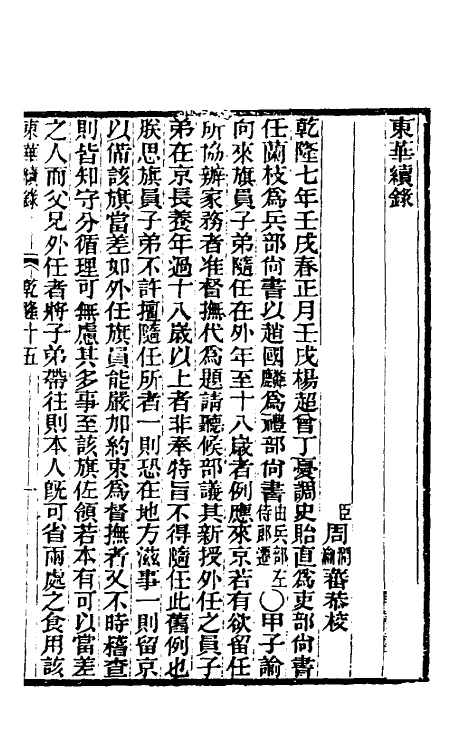 東華續錄
臣周潤蕃恭校
乾隆七年壬戌春正月壬戌楊超曾丁憂調史貽直爲吏部尙書
任蘭枝爲兵部尙書以趙國麟爲禮部尙書由兵部左侍郎遷○甲子諭
向來旗員子弟隨任在外年至十八歲者例應來京若有欲留任
所協辦家務者准督撫代爲題請聽候部議其新授外任之員子
弟在京長養年過十八歲以上者非奉特旨不得隨任此舊例也
朕思旗員子弟不許擅隨任所者一則恐在地方滋事一則留京
以備該旗當差如外任旗員能嚴加約束爲督撫者又不時稽查
則皆知守分循理可無慮其多事至該旗佐領若本有可以當差
之人而父兄外任者將子弟帶往則本人旣可省兩處之食用該
東華續錄 乾隆十五 一